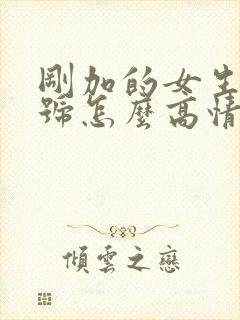 剛加的女生
號怎麼高情
傾雲之戀